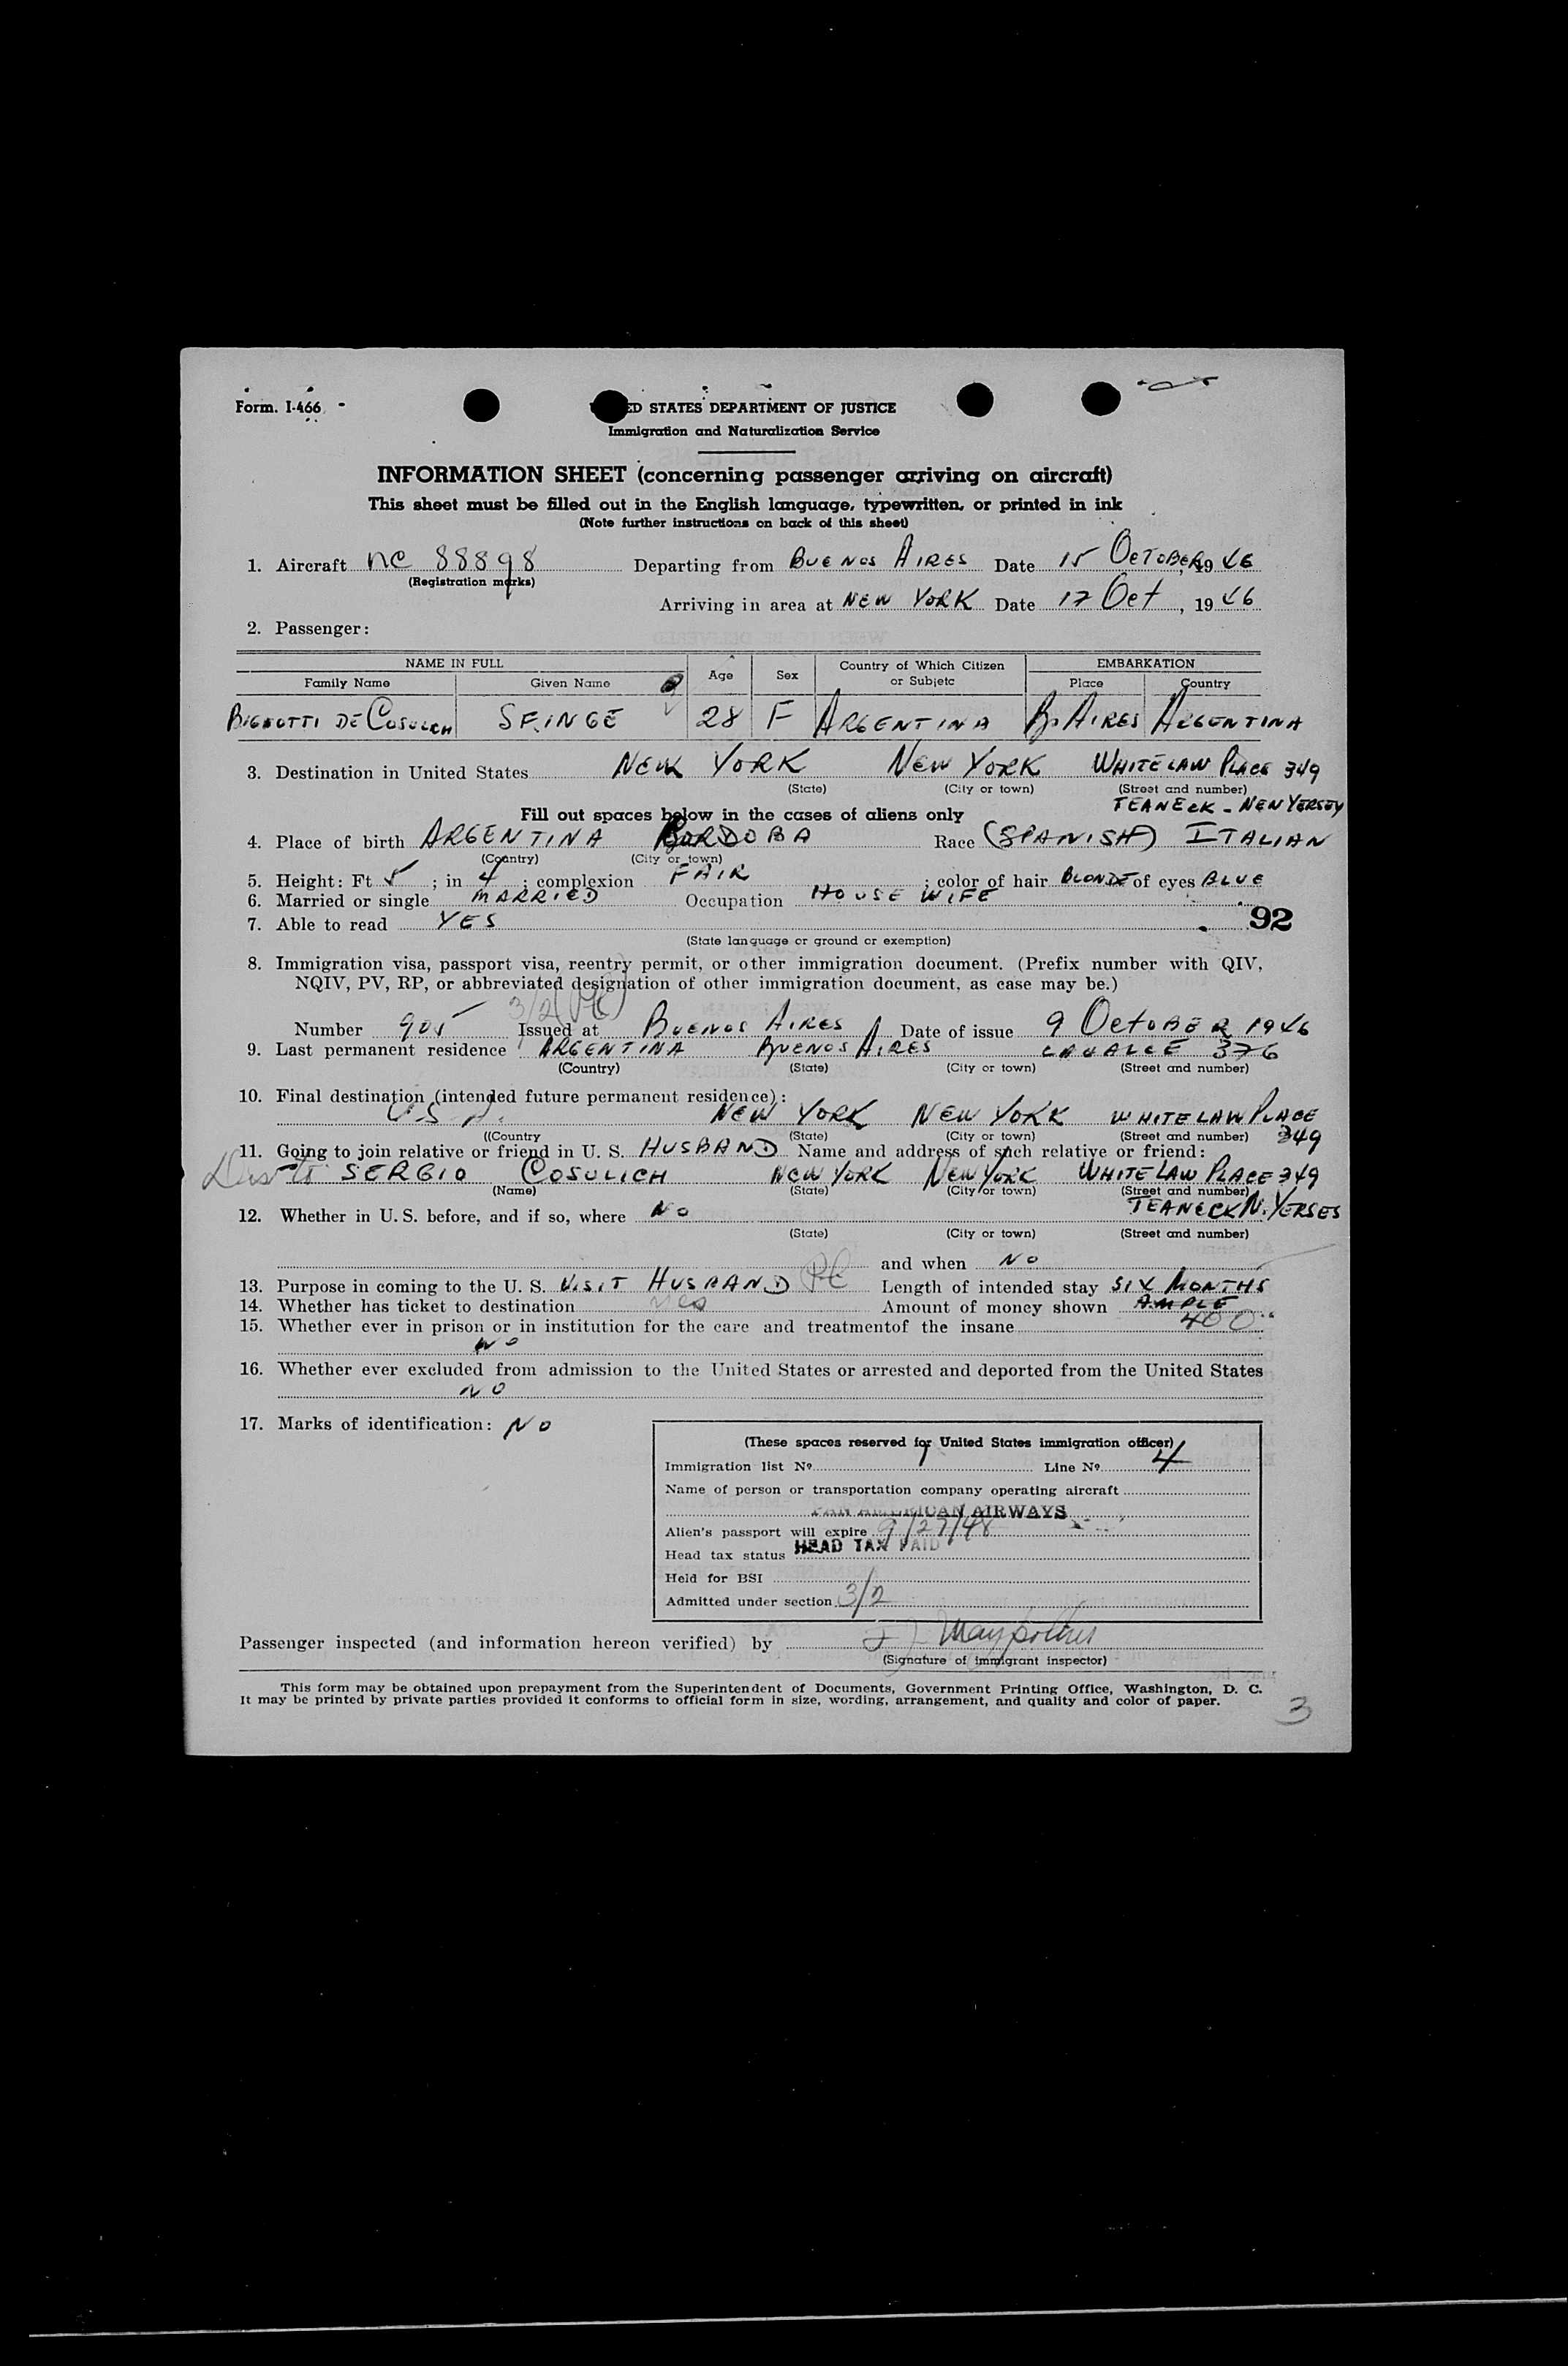 Form. I-466
ED STATES DEPARTMENT OF JUSTICE
Immigration and Naturalization Service
INFORMATION SHEET (concerning passenger arriving on aircraft)
This sheet must be filled out in the English language, typewritten, or printed in ink
(Note further instructions on back of this sheet)
1. Aircraft NC 88898 Departing from BUENOS AIRES Date 15 OCTOBER, 1946
(Registration marks)
Arriving in area at NEW YORK Date 17 Oct, 1946
2. Passenger:
NAME IN FULL Age Sex Country of Which Citizen or Subjetc EMBARKATION
Family Name Given Name Place Country
DE COSULICH 28 F ARGENTINA B. AIRES ARGENTINA
3. Destination in United States NEW YORK NEW YORK WHITELAW PLACE 349
(State) (City or town) (Street and number)
TEANECK - NEW YERSEY
Fill out spaces below in the cases of aliens only
4. Place of birth ARGENTINA CORDOBA Race (SPANISH) ITALIAN
(Country) (City or town)
5. Height: Ft 5 ; in 4 ; complexion FAIR ; color of hair BLONDE of eyes BLUE
6. Married or single MARRIED Occupation HOUSE WIFE
7. Able to read YES 92
(State language or ground or exemption)
8. Immigration visa, passport visa, reentry permit, or other immigration document. (Prefix number with QIV,
NQIV, PV, RP, or abbreviated designation of other immigration document, as case may be.)
3/2
Number 905 Issued at BUENOS AIRES Date of issue 9 OCTOBER 1946
9. Last permanent residence ARGENTINA BUENOS AIRES 376
(Country) (State) (City or town) (Street and number)
10. Final destination (intended future permanent residence):
U.S.A. NEW YORK NEW YORK WHITELAW PLACE
((Country (State) (City or town) (Street and number) 349
11. Going to join relative or friend in U. S. HUSBAND Name and address of such relative or friend:
SERGIO COSULICH NEW YORK NEW YORK WHITELAW PLACE 349
(Name) (State) (City or town) (Street and number)
TEANECK N. YERSES
12. Whether in U. S. before, and if so, where NO
(State) (City or town) (Street and number)
and when NO
13. Purpose in coming to the U. S. VISIT HUSBAND Length of intended stay SIX MONTHS
14. Whether has ticket to destination yes Amount of money shown AMPLE
15. Whether ever in prison or in institution for the care and treatmentof the insane 400
NO
16. Whether ever excluded from admission to the United States or arrested and deported from the United States
NO
17. Marks of identification: NO
(These spaces reserved for United States immigration officer)
Immigration list Nº Line Nº 4
Name of person or transportation company operating aircraft
PAN AMERICAN AIRWAYS
Alien's passport will expire 9/27/48
Head tax status HEAD TAX PAID
Held for BSI
Admitted under section 3/2
Passenger inspected (and information hereon verified) by
(Signature of immigrant inspector)
This form may be obtained upon prepayment from the Superintendent of Documents, Government Printing Office, Washington, D. C.
It may be printed by private parties provided it conforms to official form in size, wording, arrangement, and quality and color of paper.
3